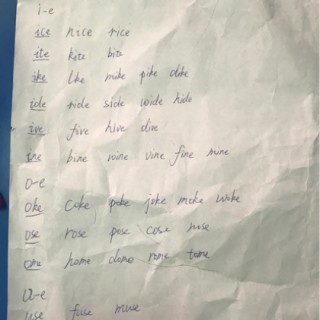 i-e
ice nice rice
ite kite bite
ike like mike pike dike
ide ride side wide hide
ive five hive dive
ine bine wine vine fine mine
o-e
oke coke poke joke moke woke
ose rose pose cose nose
ome home dome rome tome
u-e
use fuse muse